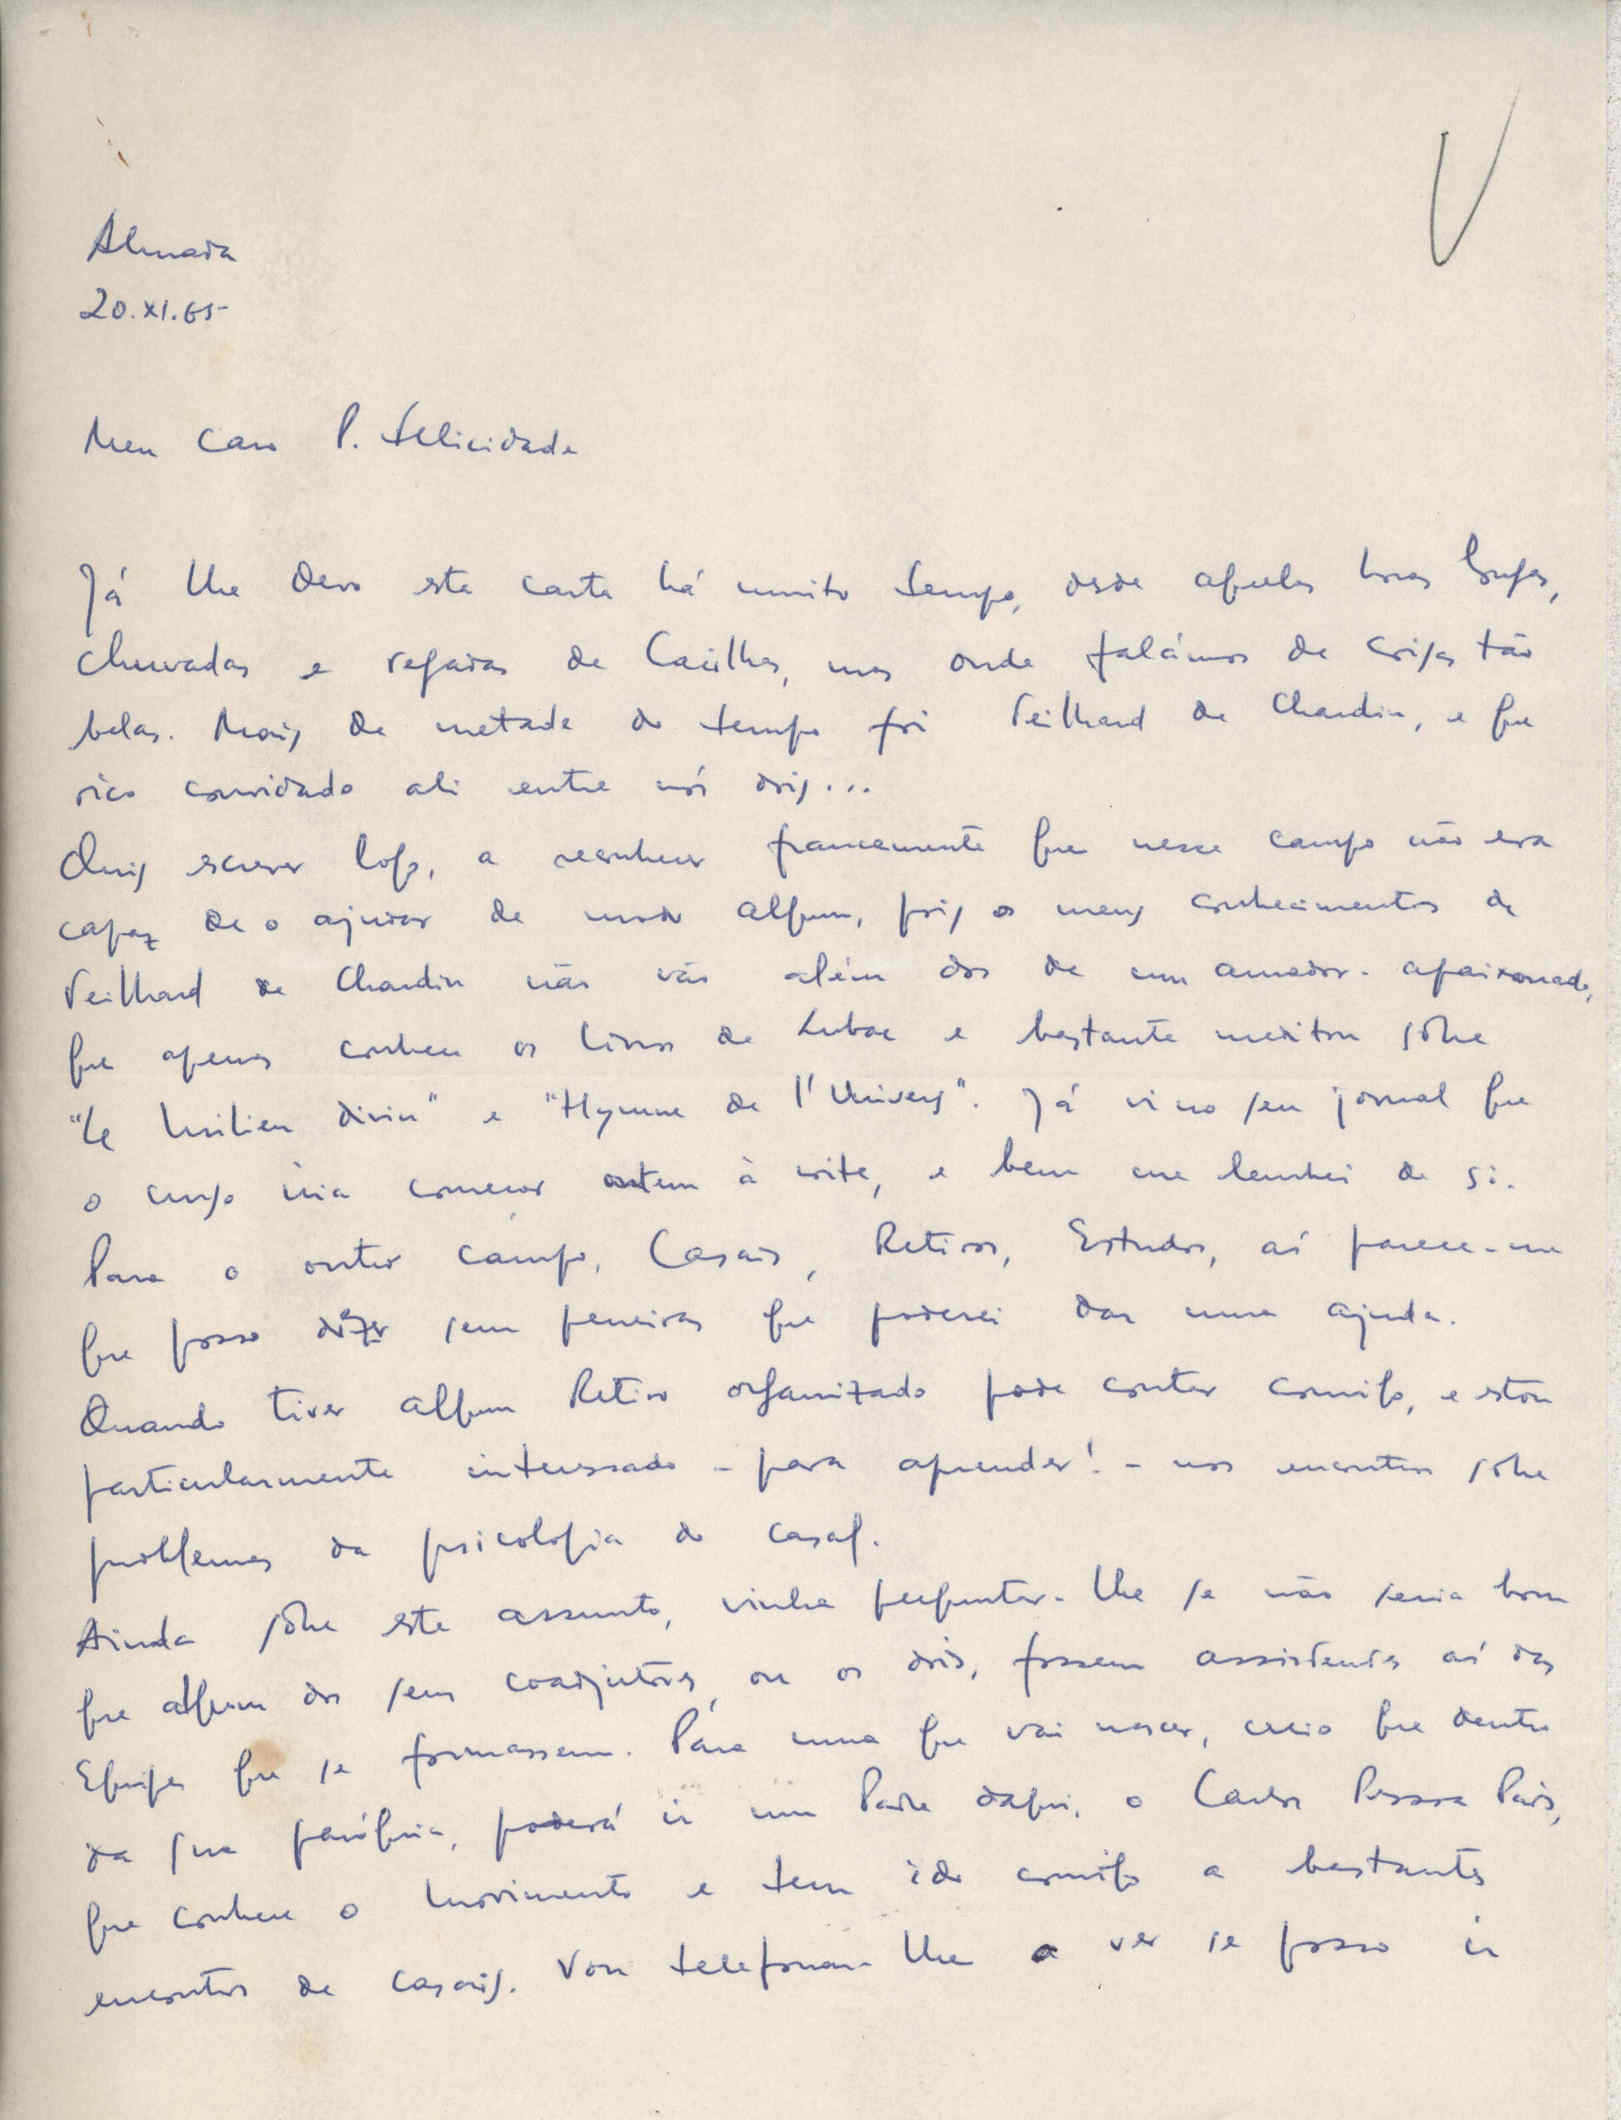 Almada
20.XI.65
Meu caro P. Felicidade
Já lhe devo esta carta há muito tempo, desde aquelas horas longas,
chuvadas e regadas de Cacilhas, mas onde falámos de coisas tão
belas. Mais de metade do tempo foi Teilhard de Chardin, e que
rico convidado ali entre nós dois...
Quis escrever logo, a reconhecer francamente que nesse campo não era
capaz de o ajudar de modo algum, pois os meus conhecimentos de
Teilhard de Chardin não vão além dos de um amador-apaixonado,
que apenas conhece os livros de Lubac e bastante meditou sôbre
"Le Milieu divin" e "Hymne de l'Univers". Já vi no seu jornal que
o curso iria começar ontem à noite, e bem me lembrei de si.
Para o outro campo, Casais, Retiros, Estudos, aí parece-me
que posso dizer sem peneiras que poderei dar uma ajuda.
Quando tiver algum Retiro organizado pode contar comigo, e estou
particularmente interessado - para aprender! - nos encontros sôbre
problemas da psicologia do casal.
Ainda sôbre este assunto, vinha perguntar-lhe se não seria bom
que algum dos seus coadjutores, ou os dois, fossem assistentes aí das
Equipas que se formassem. Para uma que vai nascer, creio que dentro
da sua paróquia, poderá ir um Padre daqui, o Carlos Pessoa Pais,
que conhece o Movimento e tem ido comigo a bastantes
encontros de casais. Vou telefonar-lhe a ver se posso ir